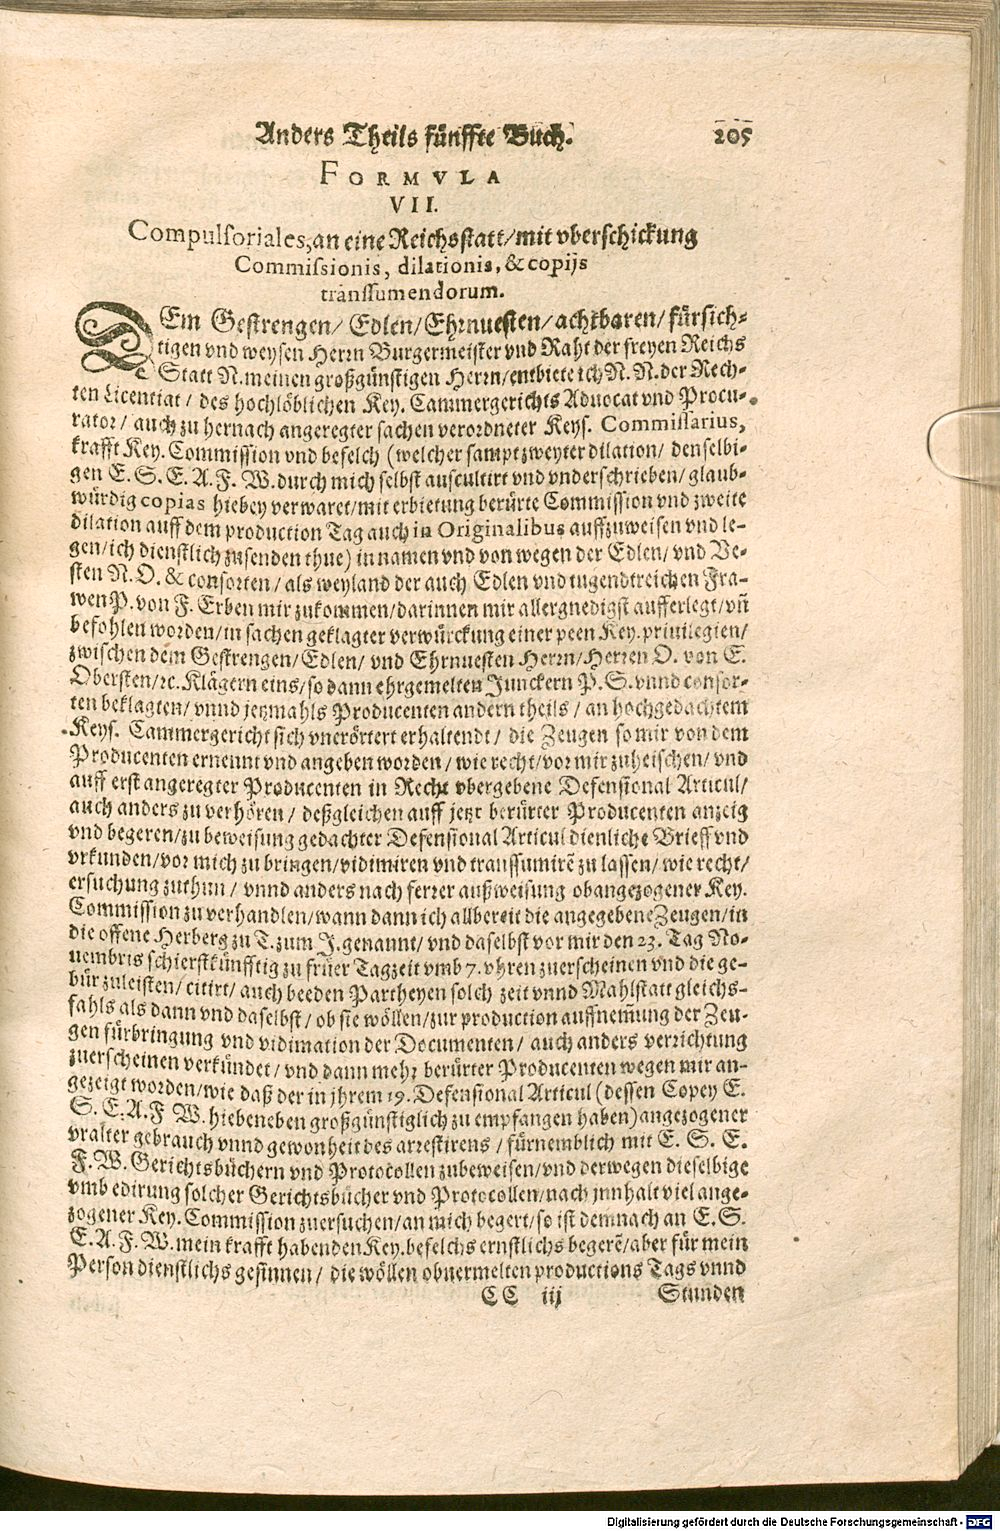 Anders Theils fünffte Buch. 205
FORMVLA
VII.
Compulsoriales, an eine Reichsstatt/ mit vberschickung
Commissionis, dilationis, & copijs
transsumendorum.
DEm Gestrengen/ Edlen/ Ehrnuesten/ achtbaren/ fürsich-
tigen vnd weysen Herrn Burgermeister vnd Raht der freyen Reichs
Statt N. meinen großgünstigen Herrn/ entbiete ich N. N. der Rech-
ten Licentiat / des hochlöblichen Key. Cammergerichts Aduocat vnd Procu-
rator/ auch zu hernach angeregter sachen verordneter Keys. Commissarius,
krafft Key. Commission vnd befelch (welcher sampt zweyter dilation/ denselbi-
gen E. S. E. A. F. W. durch mich selbst auscultirt vnd vnderschrieben/ glaub-
würdig copias hiebey verwaret/ mit erbietung berürte Commission vnd zweite
dilation auff dem production Tag auch in Originalibus auffzuweisen vnd le-
gen/ ich dienstlich zusenden thue) in namen vnd von wegen der Edlen/ vnd Ve-
sten N. O. & consorten / als weyland der auch Edlen vnd tugendtreichen Fra-
wen P. von F. Erben mir zukommen/ darinnen mir allergnedigst aufferlegt/ vñ
befohlen worden/ in sachen geklagter verwürckung einer peen Key. priuilegien/
zwischen dem Gestrengen/ Edlen/ vnd Ehrnuesten Herrn/ Herren O. von E.
Obersten/ ꝛc. Klägern eins/ so dann ehrgemelten Junckern P. S. vnnd consor-
ten beklagten/ vnnd jetzmahls Producenten andern theils / an hochgedachtem
Keys. Cammergericht sich vnerörtert erhaltendt / die Zeugen so mir von dem
Producenten ernennt vnd angeben worden / wie recht/ vor mir zu heischen/ vnd
auff erst angeregter Producenten in Recht vbergebene Defensional Articul/
auch anders zu verhören / deßgleichen auff jetzt berürter Producenten anzeig
vnd begeren/ zu beweisung gedachter Defensional Articul dienliche Brieff vnd
vrkunden/ vor mich zu bringen/ vidimiren vnd transsumirẽ zu lassen/ wie recht/
ersuchung zuthun / vnnd anders nach ferrer außweisung obangezogener Key.
Commission zu verhandlen/ wann dann ich allbereit die angegebene Zeugen/ in
die offene Herberg zu T. zum J. genannt/ vnd daselbst vor mir den 23. Tag No-
uembris schierstkünfftig zu früer Tagzeit vmb 7. vhren zuerscheinen vnd die ge-
bür zuleisten/ citirt/ auch beeden Partheyen solch zeit vnnd Mahlstatt gleichs-
fahls als dann vnd daselbst/ ob sie wöllen/ zur production auffnem̃ung der Zeu-
gen fürbringung vnd vidimation der Documenten / auch anders verrichtung
zuerscheinen verkündet/ vnd dann mehr berürter Producenten wegen mir an-
gezeigt worden/ wie daß der in jhrem 19. Defensional Articul (dessen Copey E.
S. E. A. F W. hiebeneben großgünstiglich zu empfangen haben) angezogener
vralter gebrauch vnnd gewonheit des arrestirens / fürnemblich mit E. S. E.
F. W. Gerichtsbüchern vnd Protocollen zubeweisen/ vnd derwegen dieselbige
vmb edirung solcher Gerichtsbücher vnd Protocollen/ nach jnnhalt viel ange-
zogener Key. Commission zuersuchen/ an mich begert/ so ist demnach an E. S.
E. A. F. W. mein krafft habenden Key. befelchs ernstlichs begerẽ/ aber für mein
Person dienstlichs gesinnen / die wöllen obuermelten productions Tags vnnd
CC iij Stunden
Digitalisierung gefördert durch die Deutsche Forschungsgemeinschaft - DFG